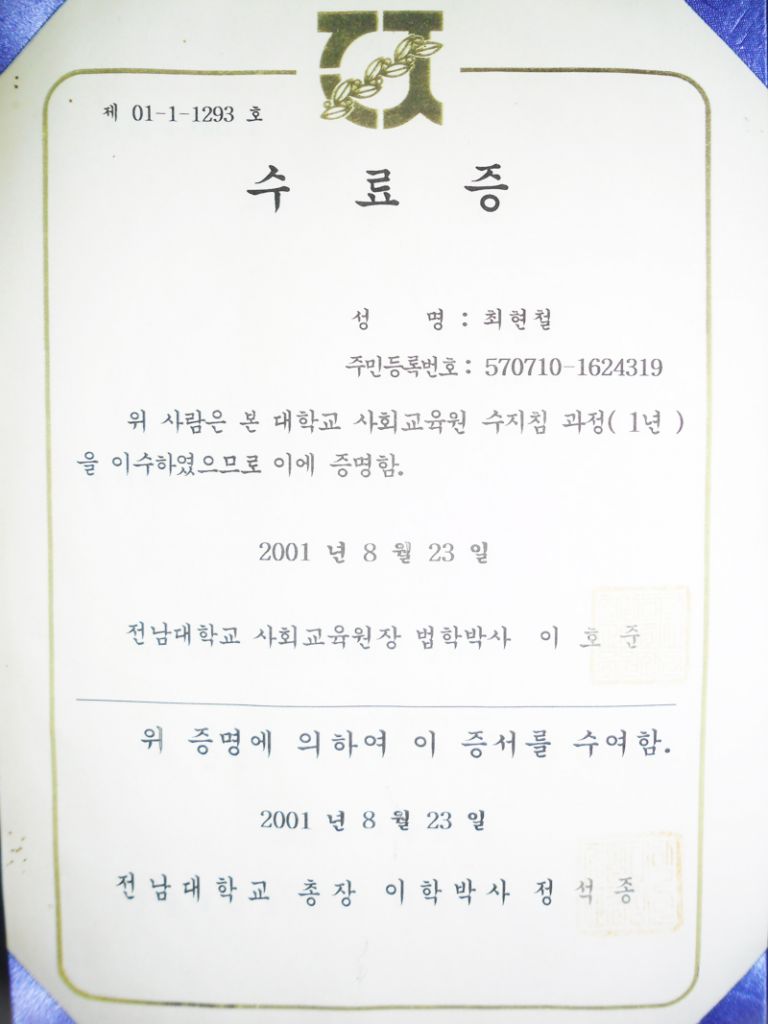 제 01-1-1293 호
수 료 증
성 명 : 최현철
주민등록번호 : 570710-1624319
위 사람은 본 대학교 사회교육원 수지침 과정( 1년 )
을 이수하였으므로 이에 증명함.
2001 년 8 월 23 일
전남대학교 사회교육원장 법학박사 이 호 준
위 증명에 의하여 이 증서를 수여함.
2001 년 8 월 23 일
전남대학교 총장 이학박사 정 석 종